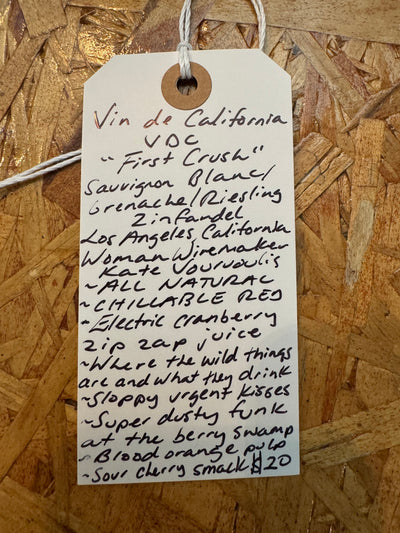 Vin de California
VDC
"First Crush"
Sauvignon Blanc/
Grenache/Riesling
Zinfandel
Los Angeles, California
Woman Winemaker
Kate Vourvoulis
~ALL NATURAL
~CHILLABLE RED
~Electric cranberry
zip zap juice
~Where the wild things
are and what they drink
~Sloppy urgent kisses
~Super dusty funk
at the berry swamp
~Blood orange pulp
~Sour cherry smack $20